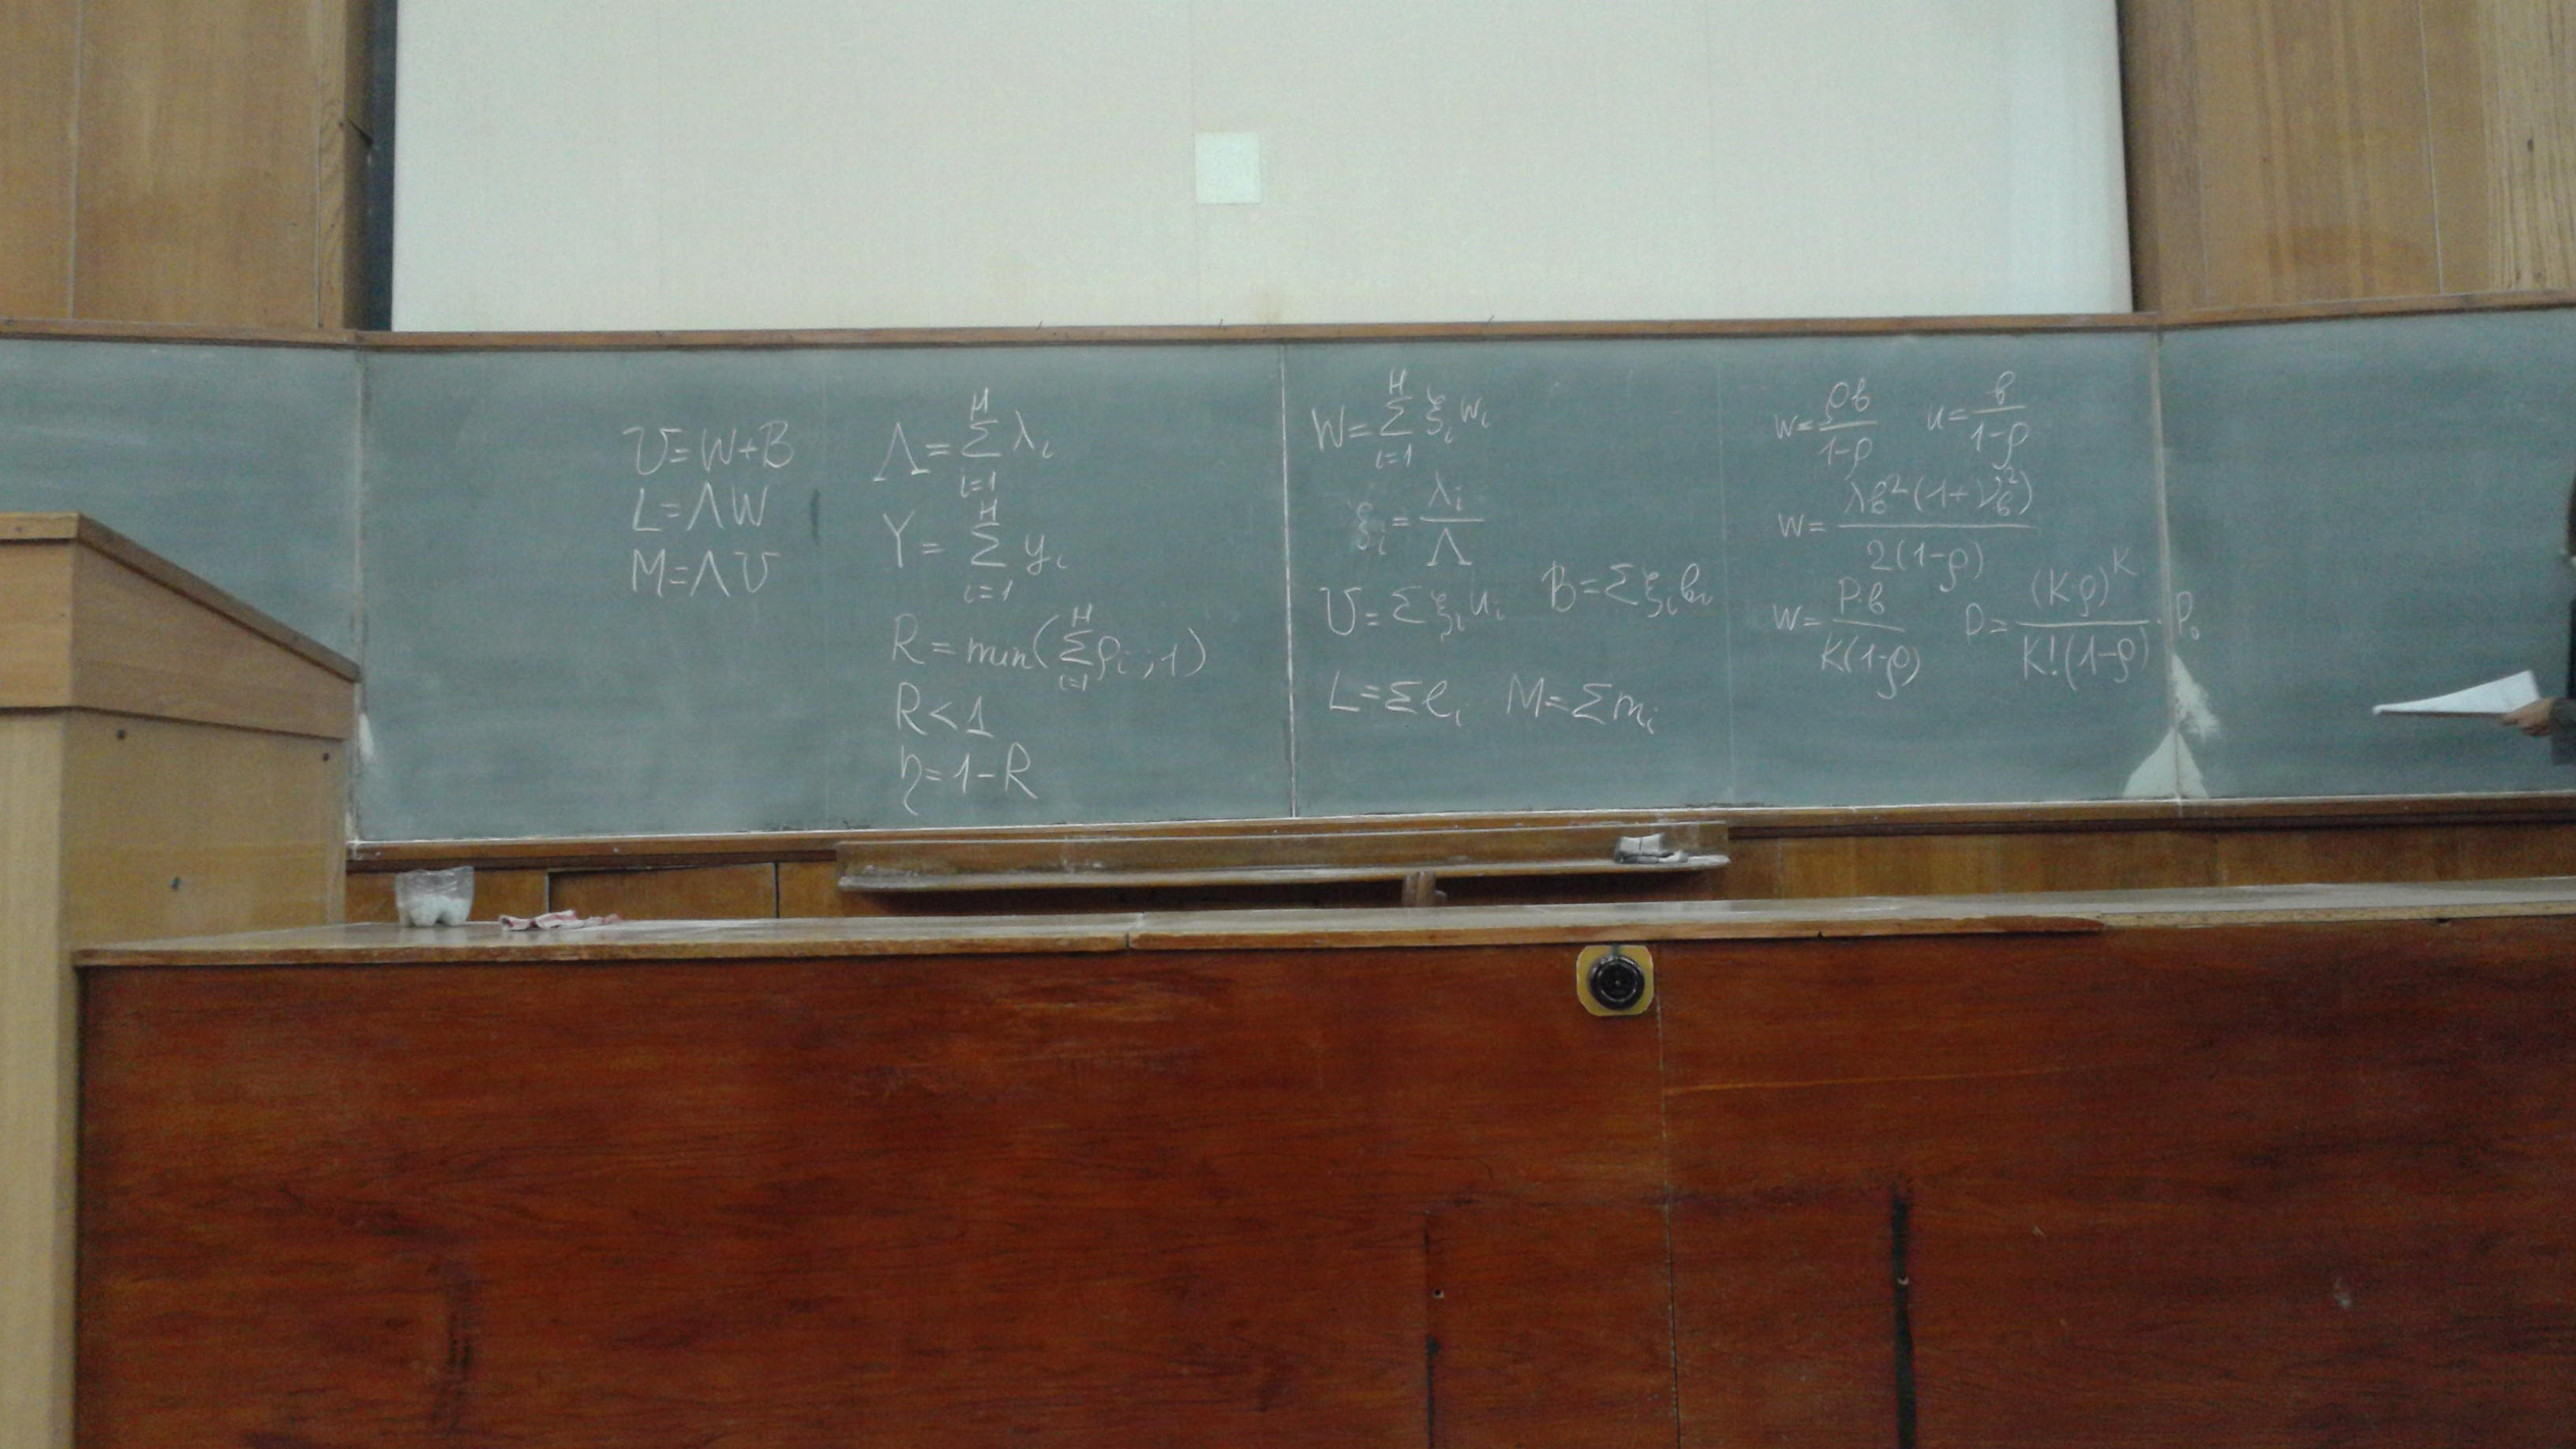 U=W+B
L=ΛW
M=ΛU
Λ=∑_{i=1}^{H} λ_i
Y=∑_{i=1}^{H} y_i
R=min(∑_{i=1}^{H} ρ_i ; 1)
R<1
η=1-R
W=∑_{i=1}^{H} ξ_i w_i
ξ_i=λ_i/Λ
U=∑ξ_i u_i B=∑ξ_i b_i
L=∑l_i M=∑m_i
w=ρв/(1-ρ) u=в/(1-ρ)
w=λв²(1+ν_в²)/(2(1-ρ))
w=P·в/(K(1-ρ)) P=(K·ρ)^K/(K!(1-ρ))·P₀